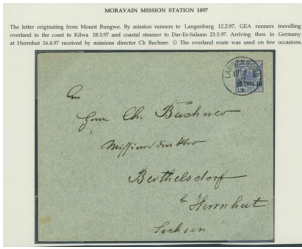 MORAVAIN MISSION STATION 1897
The letter originating from Mount Rungwe. By mission runners to Langenburg 12.2.97, GEA runners travelling
overland to the coast to Kilwa 18.3.97 and coastal steamer to Dar-Es-Salaam 23.3.97. Arriving then in Germany
at Herrnhut 16.4.97 received by missions director Ch Buchner. The overland route was used on few occasions.
An
Herrn Ch. Buchner
Missionsdirektor
Berthelsdorf
b Herrnhut
Sachsen